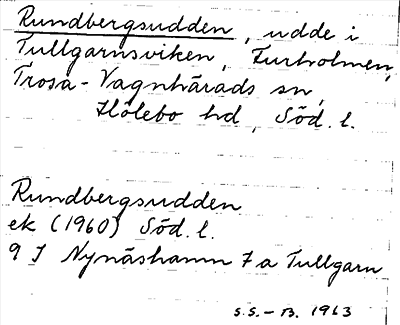 Rundbergsudden, udde i
Tullgarnsviken, Furholmen,
Trosa-Vagnhärads sn,
Hölebo hd, Söd. l.
Rundbergsudden
ek (1960) Söd. l.
9 I Nynäshamn 7 a Tullgarn
S.S. - B. 1963